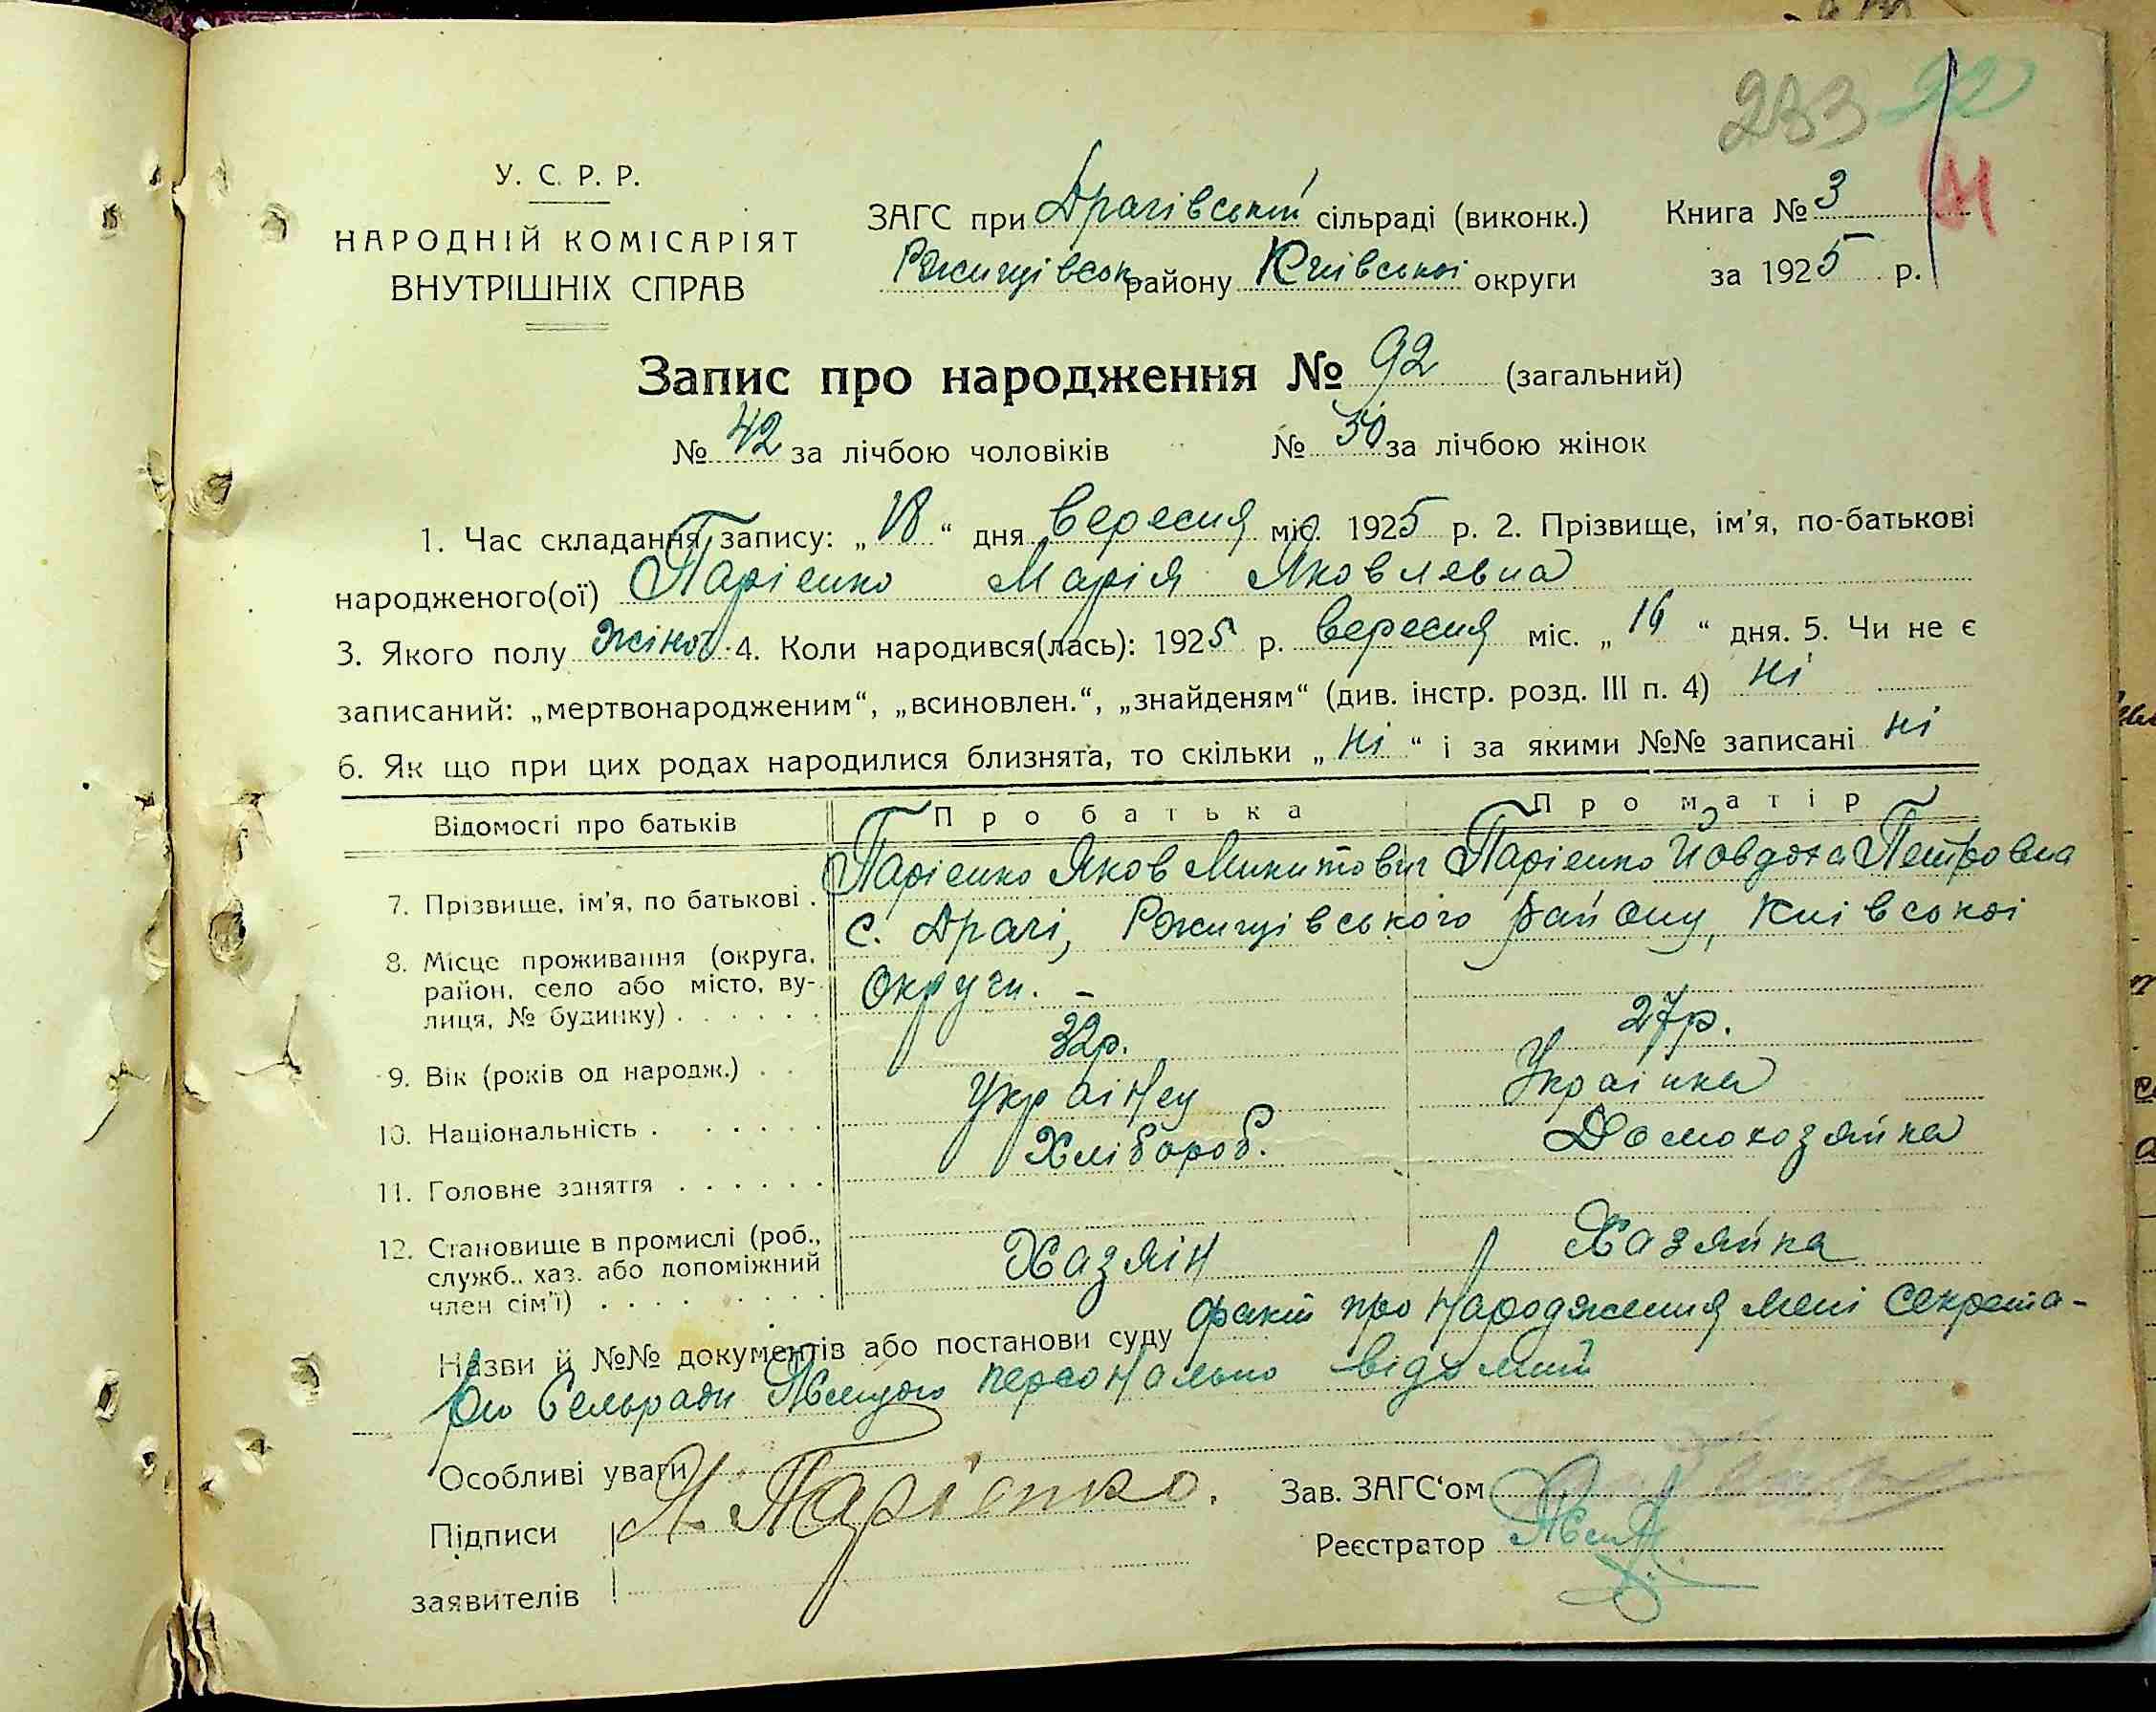 283 92
41
У. С. Р. Р.
НАРОДНІЙ КОМІСАРІЯТ
ВНУТРІШНІХ СПРАВ
ЗАГС при Драчівській сільраді (виконк.) Книга № 3
Ржищівськ району Київської округи за 1925 р.
Запис про народження № 92 (загальний)
№ 42 за лічбою чоловіків № 50 за лічбою жінок
1. Час складання запису: „18“ дня вересня міс. 1925 р. 2. Прізвище, ім’я, по-батькові
народженого(ої) Парієнко Марія Яковлевна
3. Якого полу жіноч. 4. Коли народився(лась): 1925 р. вересня міс. „16“ дня. 5. Чи не є
записаний: „мертвонародженим“, „всиновлен.“, „знайденям“ (див. інстр. розд. III п. 4) ні
6. Як що при цих родах народилися близнята, то скільки „ні“ і за якими №№ записані ні
Відомості про батьків Про батька Про матір
7. Прізвище, ім’я, по батькові . Парієнко Яков Микитович Парієнко Йовдоха Петровна
8. Місце проживання (округа, с. Драчі, Ржищівського району, Київської
район, село або місто, ву- округи. –
лиця, № будинку) . . . . . .
9. Вік (років од народж.) . . 32р. 27р.
10. Національність . . . . . . Українец Українка
11. Головне заняття . . . . . . Хлібороб. Домохозяйка
12. Становище в промислі (роб.,
служб., хаз. або допоміжний Хазяін Хазяйка
член сім’ї) . . . . . . . . .
Назви й №№ документів або постанови суду факт про народження мені секрета-
рю Сельради персонально відомий
Особливі уваги
Підписи Я. Парієнко. Зав. ЗАГС‘ом
заявителів Реєстратор